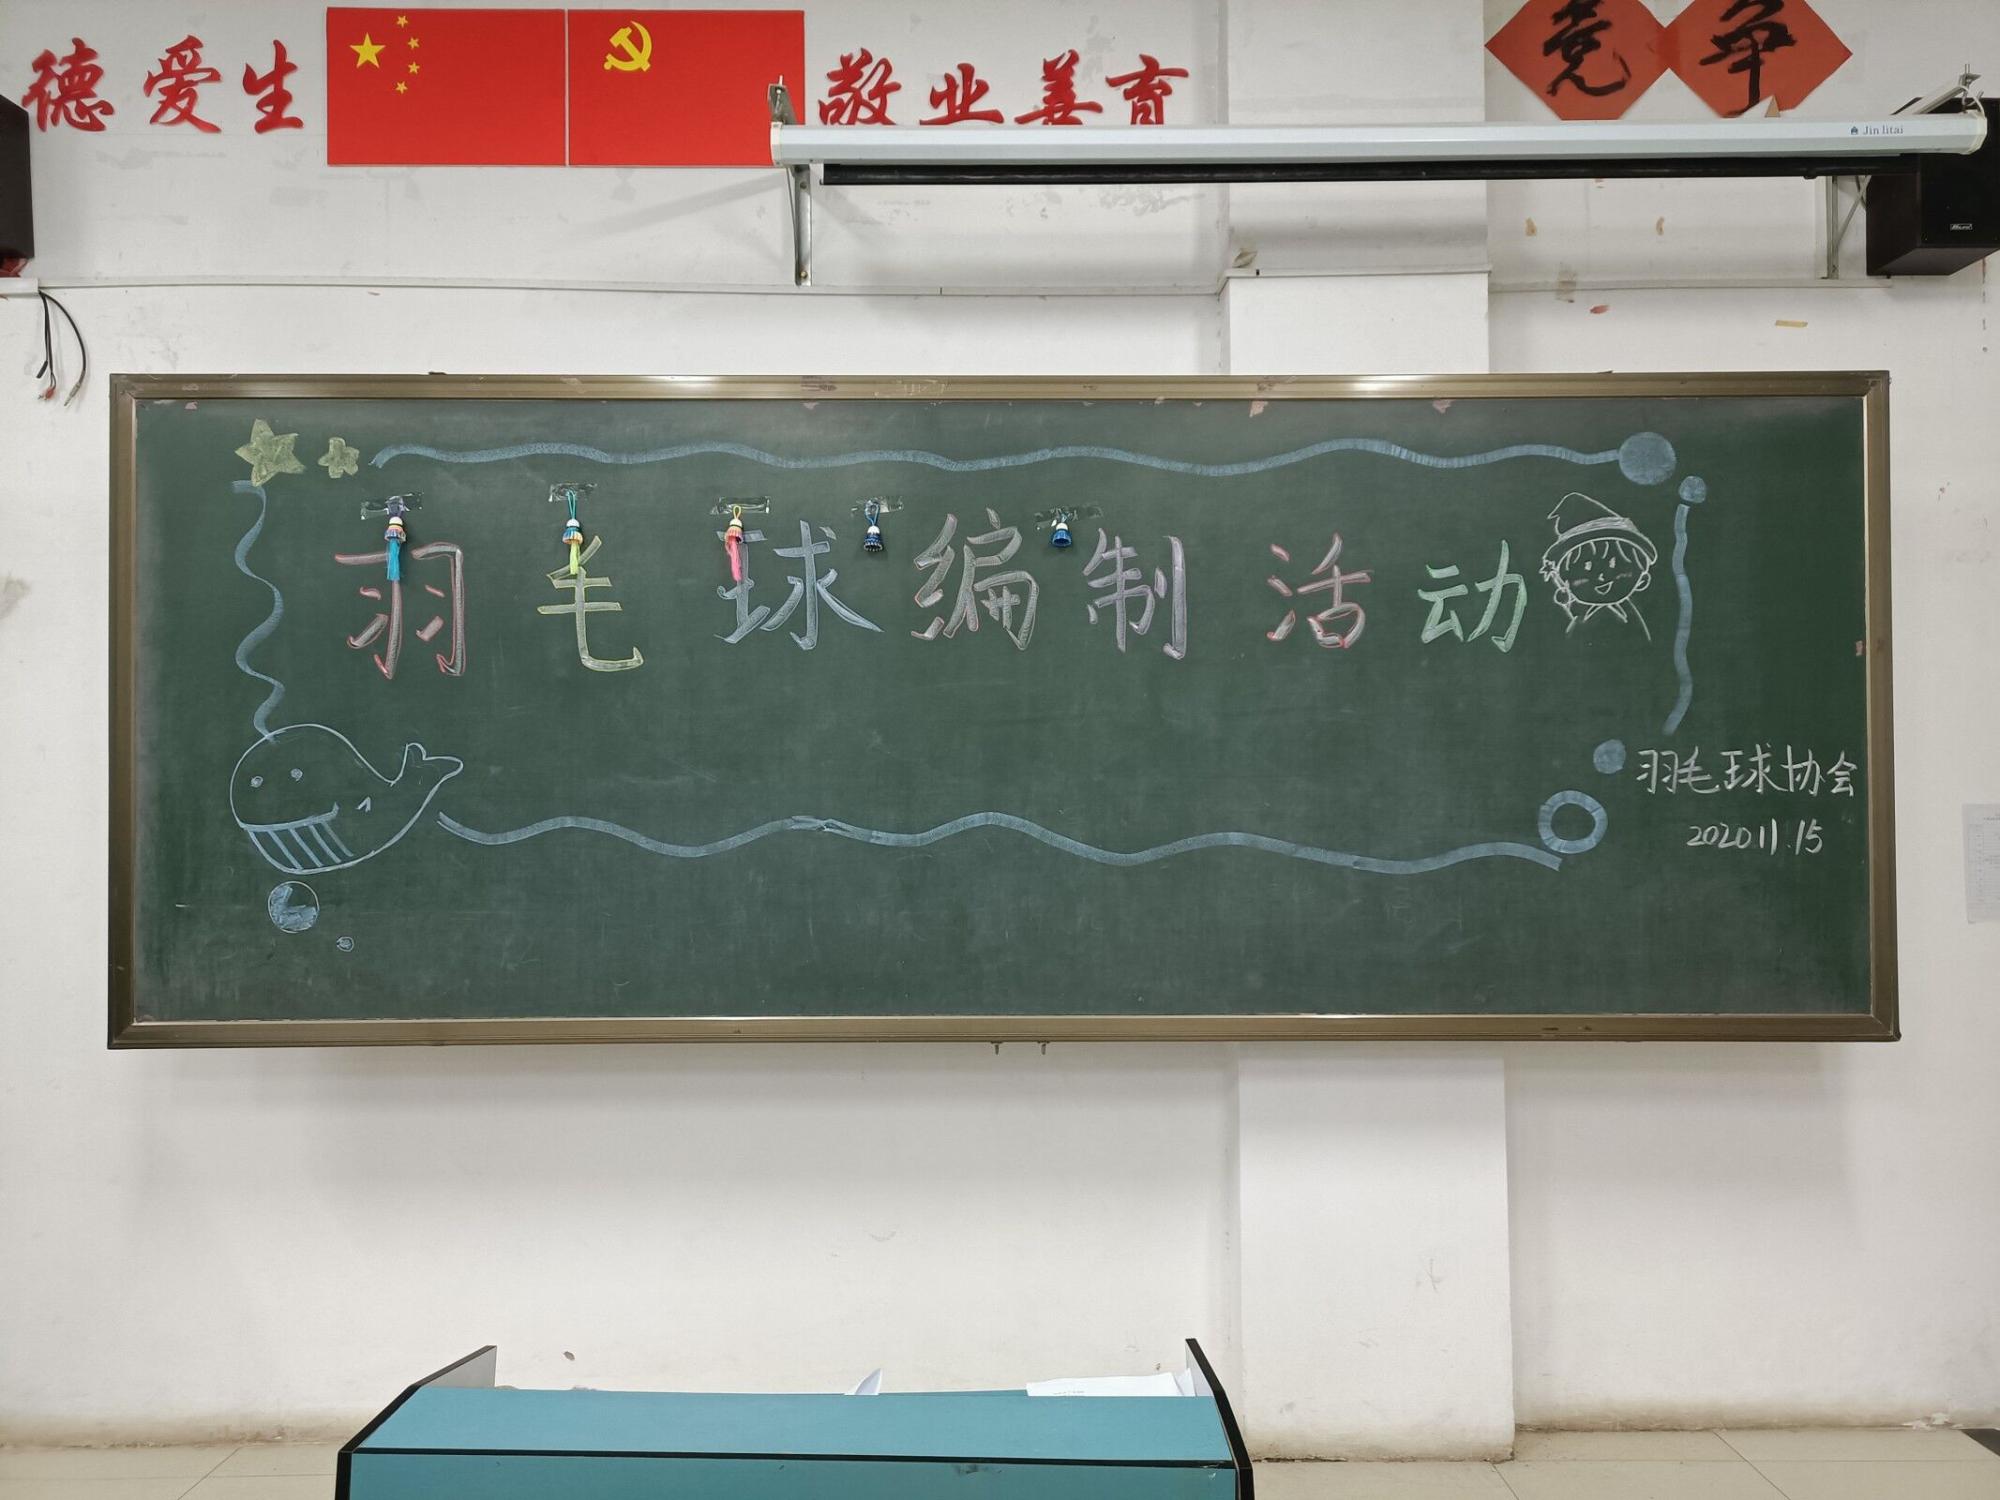 德爱生
敬业善育
竞争
Jin litai
羽毛球编制活动
羽毛球协会
2020.11.15